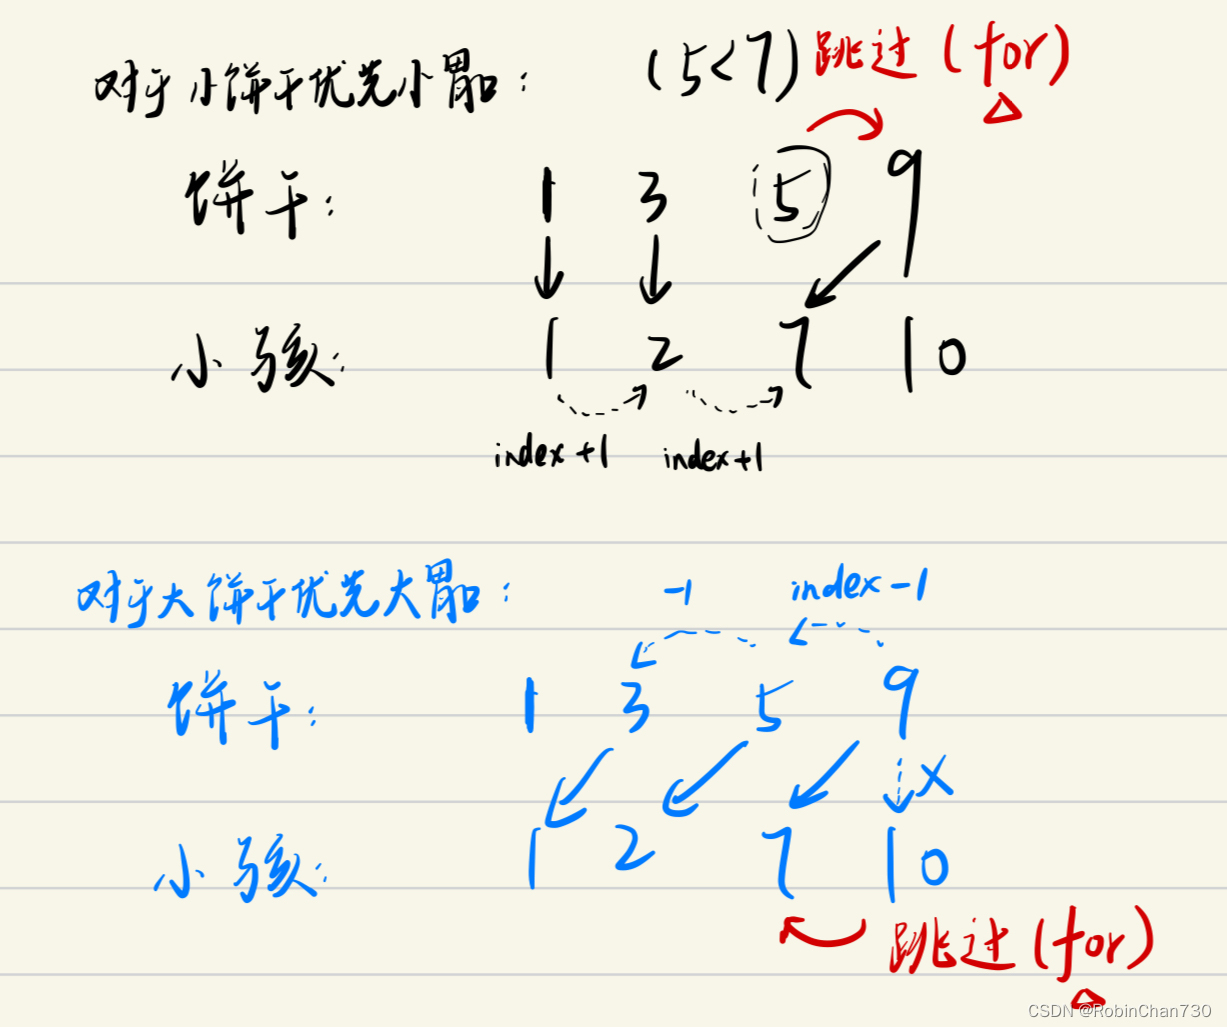 对于小饼干优先小胃口： (5<7) 跳过 (for)
饼干： 1 3 5 9
小孩： 1 2 7 10
index+1 index+1
对于大饼干优先大胃口： -1 index-1
饼干： 1 3 5 9
x
小孩： 1 2 7 10
跳过 (for)
CSDN @RobinChan730